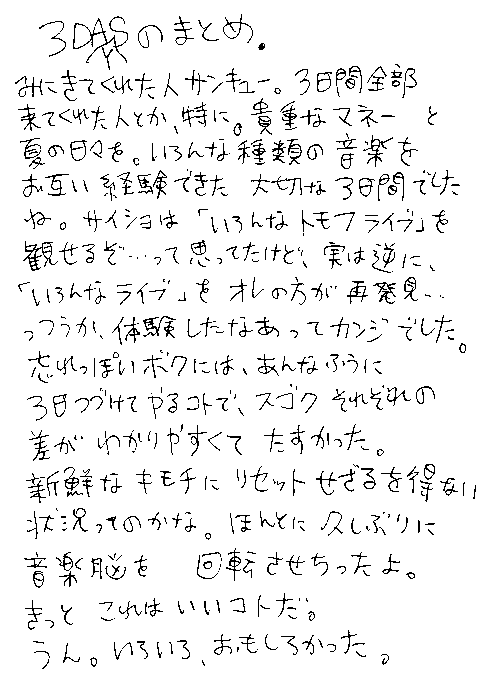 3DAYSのまとめ.
みにきてくれた人サンキュー。3日間全部
来てくれた人とか、特に。貴重なマネーと
夏の日々を。いろんな種類の音楽を
お互い経験できた 大切な3日間でした
ね。サイショは「いろんなトモフライブ」を
観せるぞ…って思ってたけど、実は逆に、
「いろんなライブ」をオレの方が再発見…
っつうか、体験したなあってカンジでした。
忘れっぽいボクには、あんなふうに
3日つづけてやるコトで、スゴクそれぞれの
差がわかりやすくてたすかった。
新鮮なキモチにリセットせざるを得ない
状況ってのかな。ほんとに久しぶりに
音楽脳を 回転させちったよ。
きっとこれはいいコトだ。
うん。いろいろ、おもしろかった。